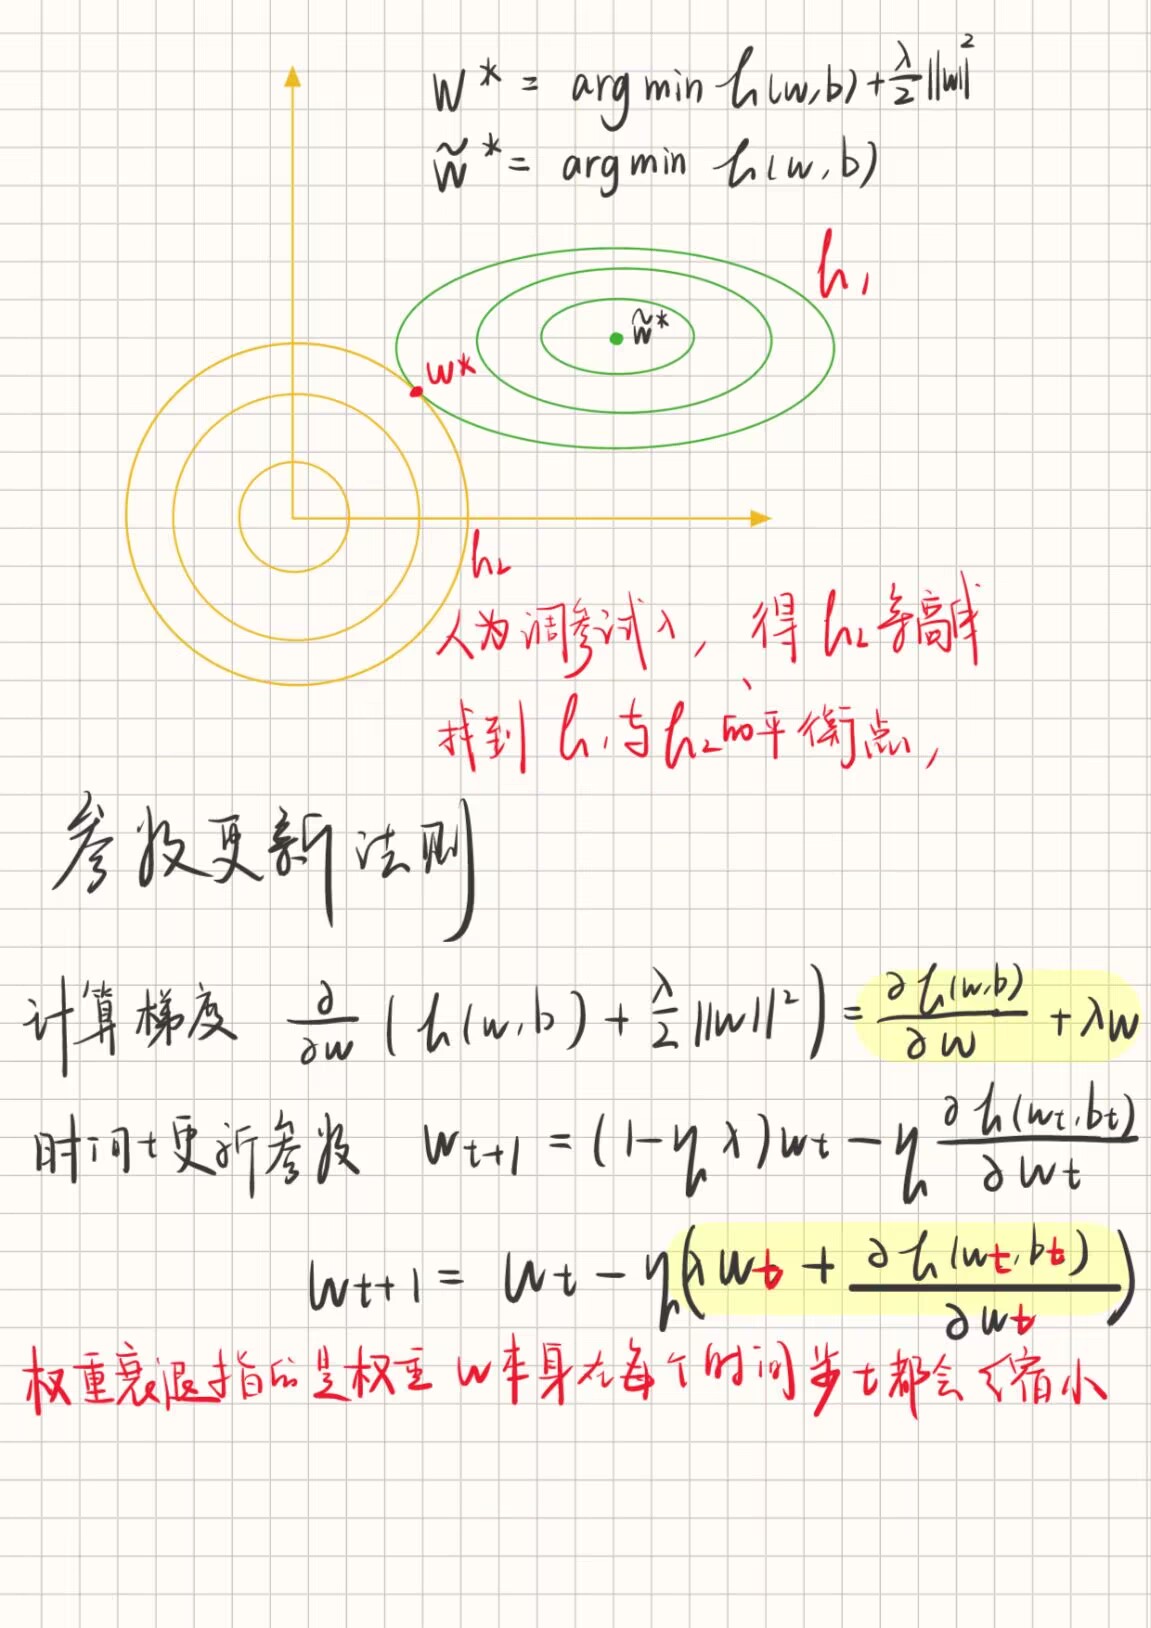 w* = arg min h(w,b) + λ/2 ||w||²
w̃* = arg min h(w,b)
h₁
w̃*
w*
h₂
人为调参试λ，得h₂等高线
找到h₁与h₂的平衡点，
参数更新法则
计算梯度 ∂/∂w (h(w,b) + λ/2 ||w||²) = ∂h(w,b)/∂w + λw
时间t更新参数 w_{t+1} = (1-ηλ)w_t - η ∂h(w_t,b_t)/∂w_t
w_{t+1} = w_t - η(λw_t + ∂h(w_t,b_t)/∂w_t)
权重衰退指的是权重w本身在每个时间步t都会缩小